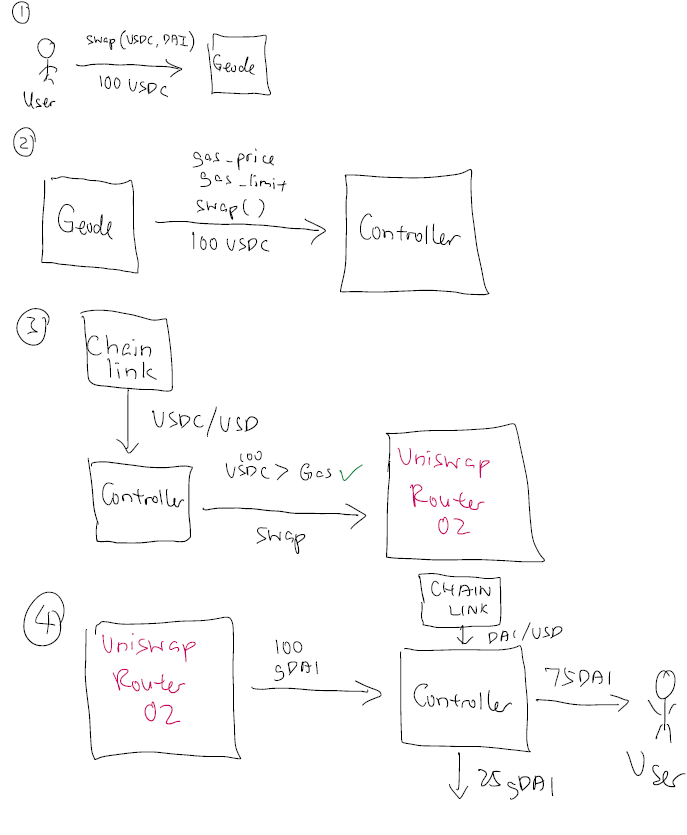 1
swap(USDC, DAI)
100 USDC
User
Geode
2
Geode
gas_price
gas_limit
swap()
100 USDC
Controller
3
Chain
link
USDC/USD
Controller
100
USDC > Gas ✓
swap
Uniswap
Router
02
4
Uniswap
Router
02
100
gDAI
CHAIN
LINK
DAI/USD
Controller
75DAI
User
25 gDAI